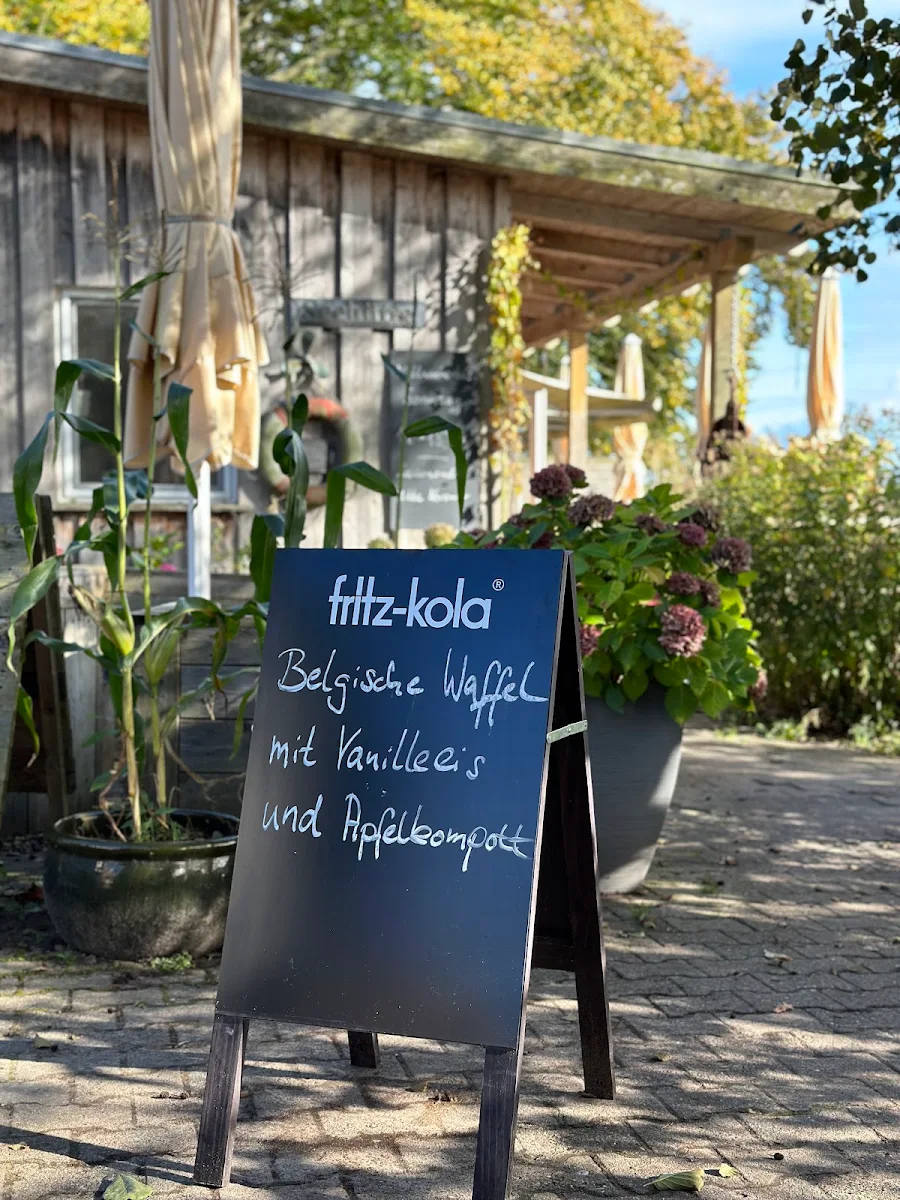 fritz-kola®
Belgische Waffel
mit Vanilleeis
und Apfelkompott